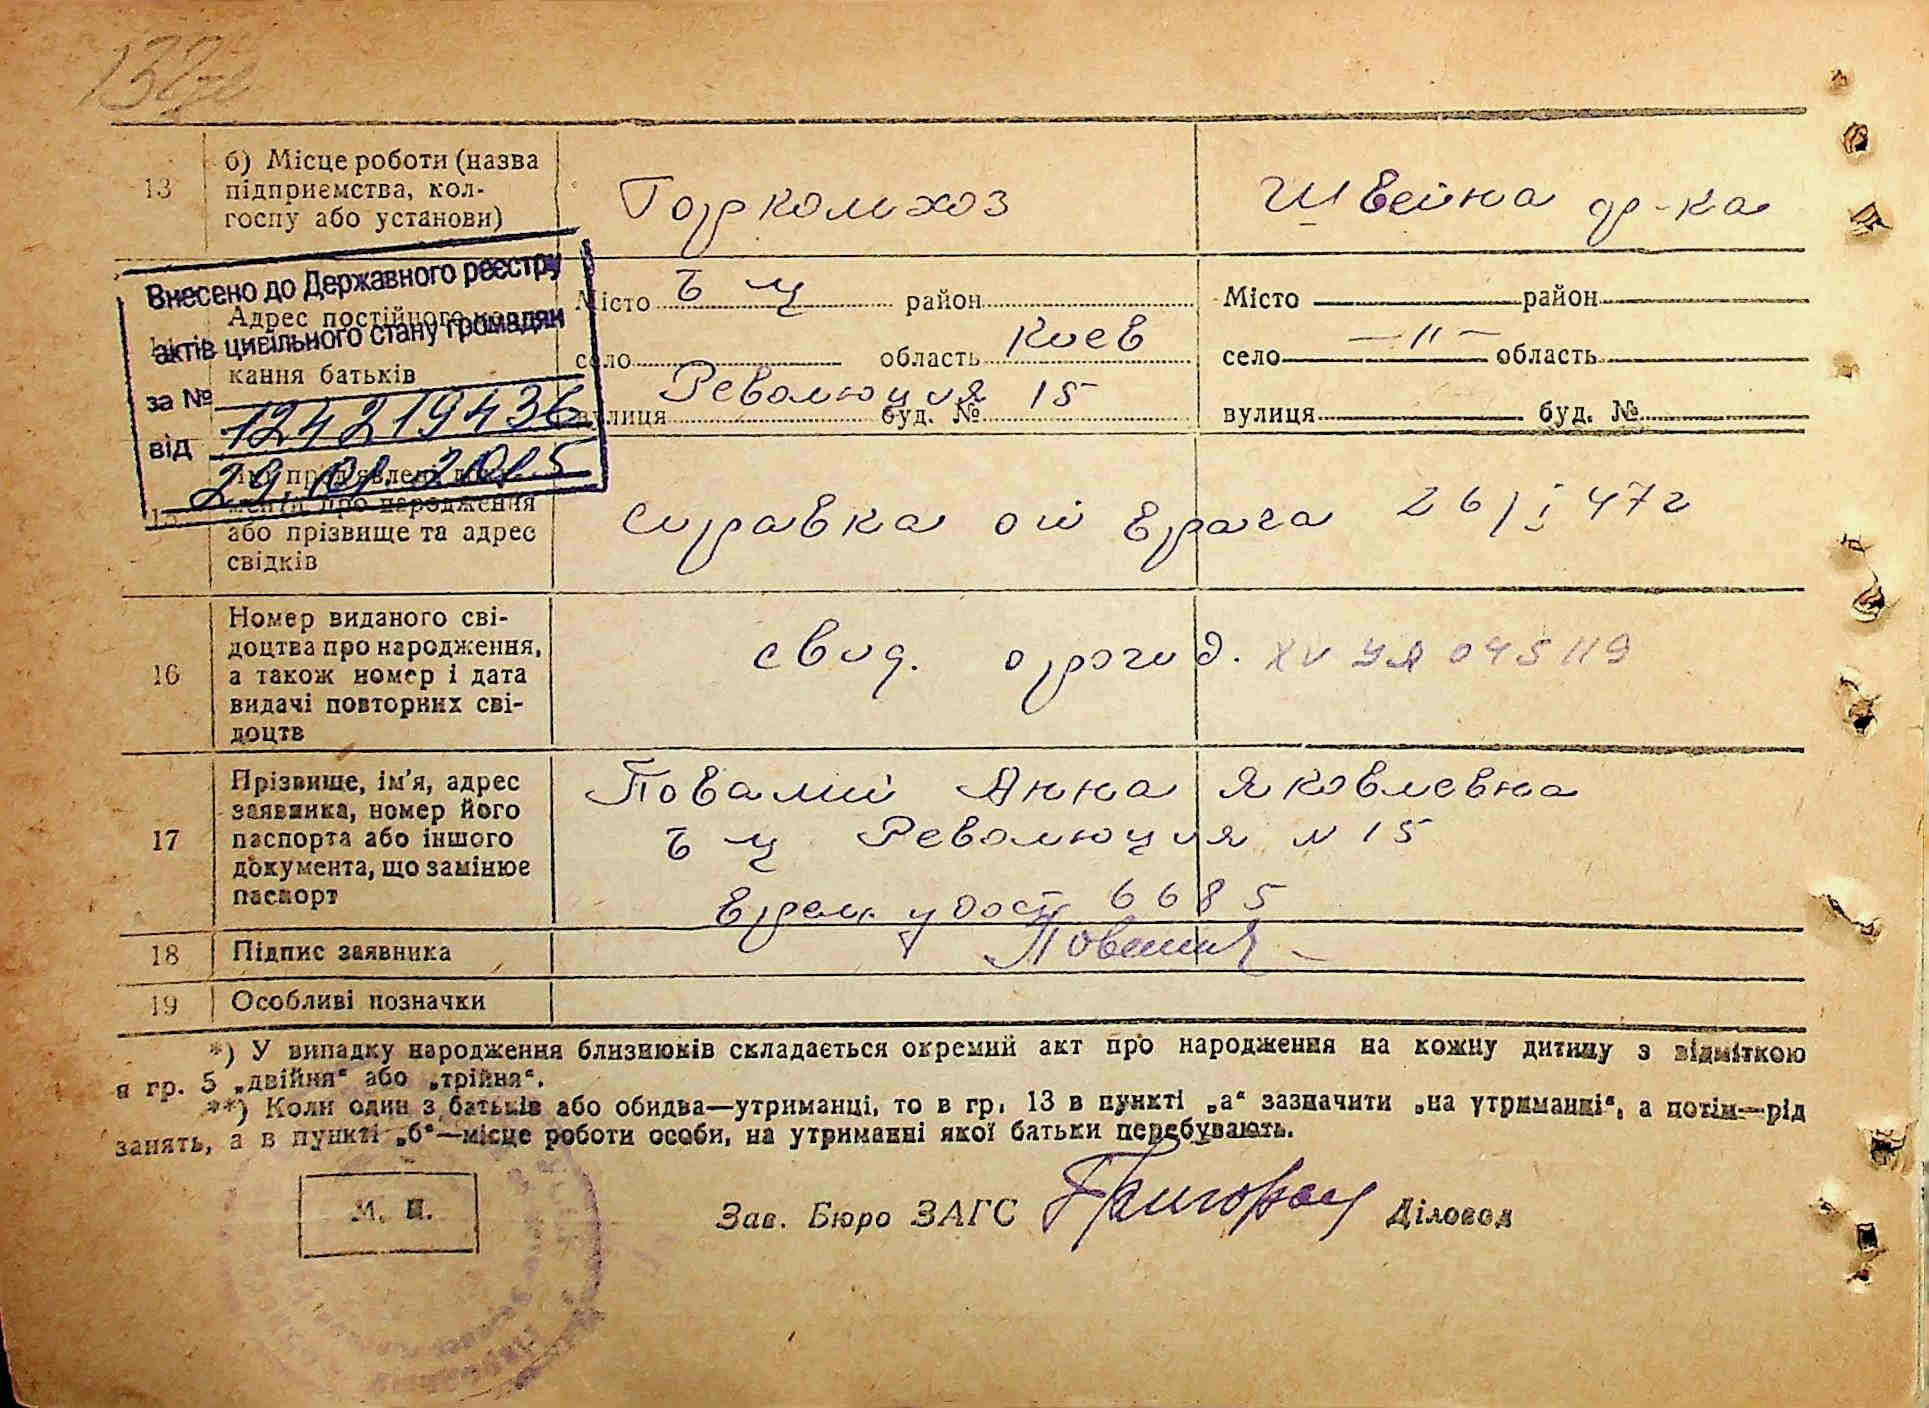 132
13
б) Місце роботи (назва
підприємства, кол-
госпу або установи)
Горкомхоз
Швейна ф-ка
Внесено до Державного реєстру
актів цивільного стану громадян
за № 124219436
від 29.01.2015
Адрес постійного
кання батьків
Місто Б Ц район
село область Киев
вулиця Революция буд. № 15
Місто район
село — " — область
вулиця буд. №
15
про народження
або прізвище та адрес
свідків
справка от врача 26/I 47 г
16
Номер виданого сві-
доцтва про народження,
а також номер і дата
видачі повторних сві-
доцтв
свид. о рожд. XV УЯ 045119
17
Прізвище, ім'я, адрес
заявника, номер його
паспорта або іншого
документа, що замінює
паспорт
Повалий Анна Яковлевна
Б Ц Революция № 15
Врем. удост 6685
18
Підпис заявника
19
Особливі позначки
*) У випадку народження близнюків складається окремий акт про народження на кожну дитину з відміткою
в гр. 5 „двійня“ або „трійня“.
**) Коли один з батьків або обидва—утриманці, то в гр. 13 в пункті „а“ зазначити „на утриманні“, а потім—рід
занять, а в пункті „б“—місце роботи особи, на утриманні якої батьки перебувають.
М. П.
Зав. Бюро ЗАГС
Діловод